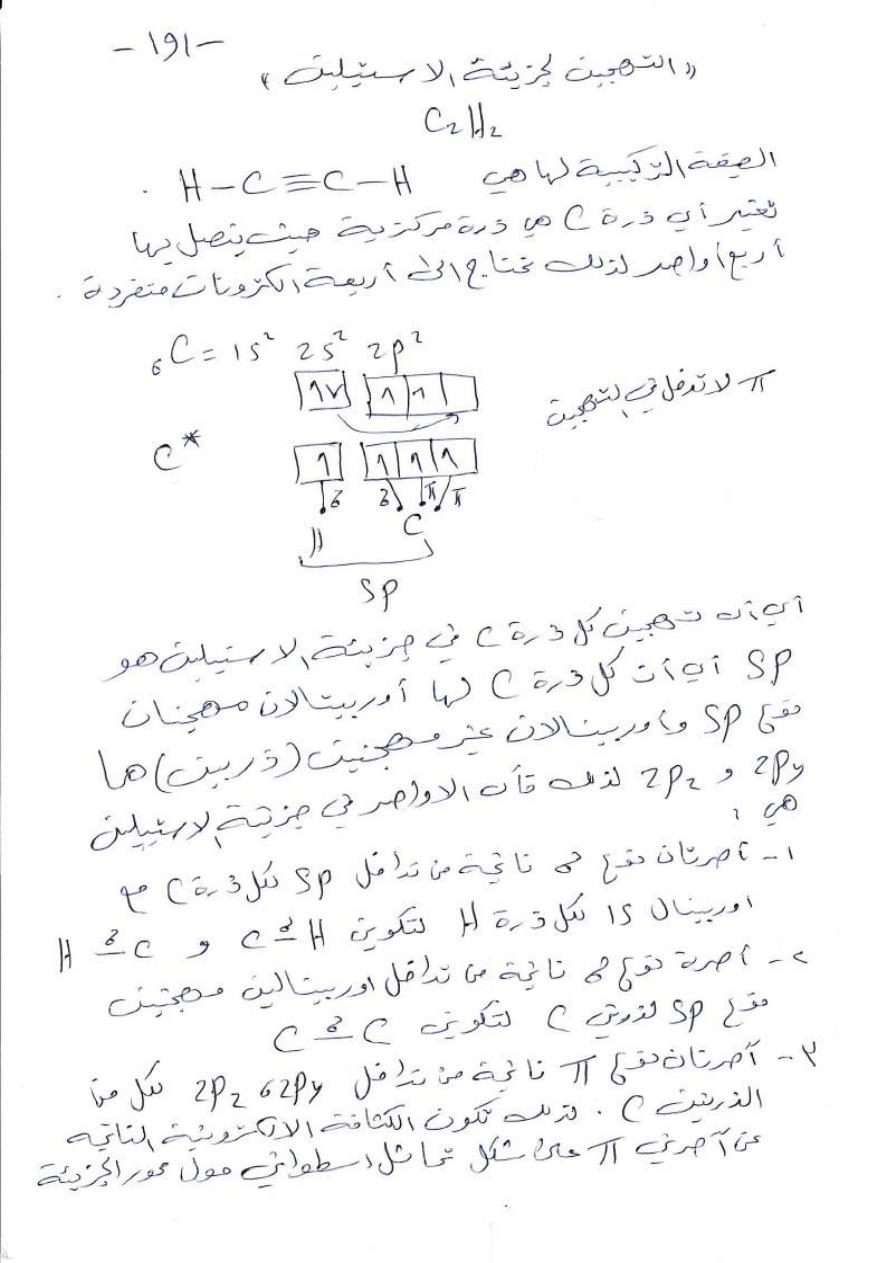 - ١٩١ -
« التهجين لجزيئة الاستيلين »
C₂H₂
الصيغة التركيبية لها هي H-C≡C-H .
نعتبر أي ذرة C هي ذرة مركزية حيث يتصل بها
أربع أواصر لذلك نحتاج الى أربعة الكترونات منفردة .
₆C = 1s² 2s² 2p²
1↿⇂ 1 1
π لا تدخل في التهجين
C*
1 1 1 1
σ σ π π
H C
SP
أي أن تهجين كل ذرة C في جزيئة الاستيلين هو
SP أي أن كل ذرة C لها أوربيتالان مهجنان
نوع SP وأوربيتالان غير مهجنين (ذريين) هما
2Py و 2Pz لذلك فأن الاواصر في جزيئة الاستيلين
هي :
١- آصرتان نوع σ ناتجة من تداخل SP لكل ذرة C مع
اوربيتال 1S لكل ذرة H لتكوين C σ- H و H σ- C
٢- آصرة نوع σ ناتجة من تداخل اوربيتالين مهجنين
نوع SP لذرتي C لتكوين C σ- C
٣- آصرتان نوع π ناتجة من تداخل 2Py ، 2Pz لكل من
الذرتين C . لذلك تكون الكثافة الالكترونية الناتجة
عن آصرتي π على شكل تماثل اسطواني حول محور الجزيئة